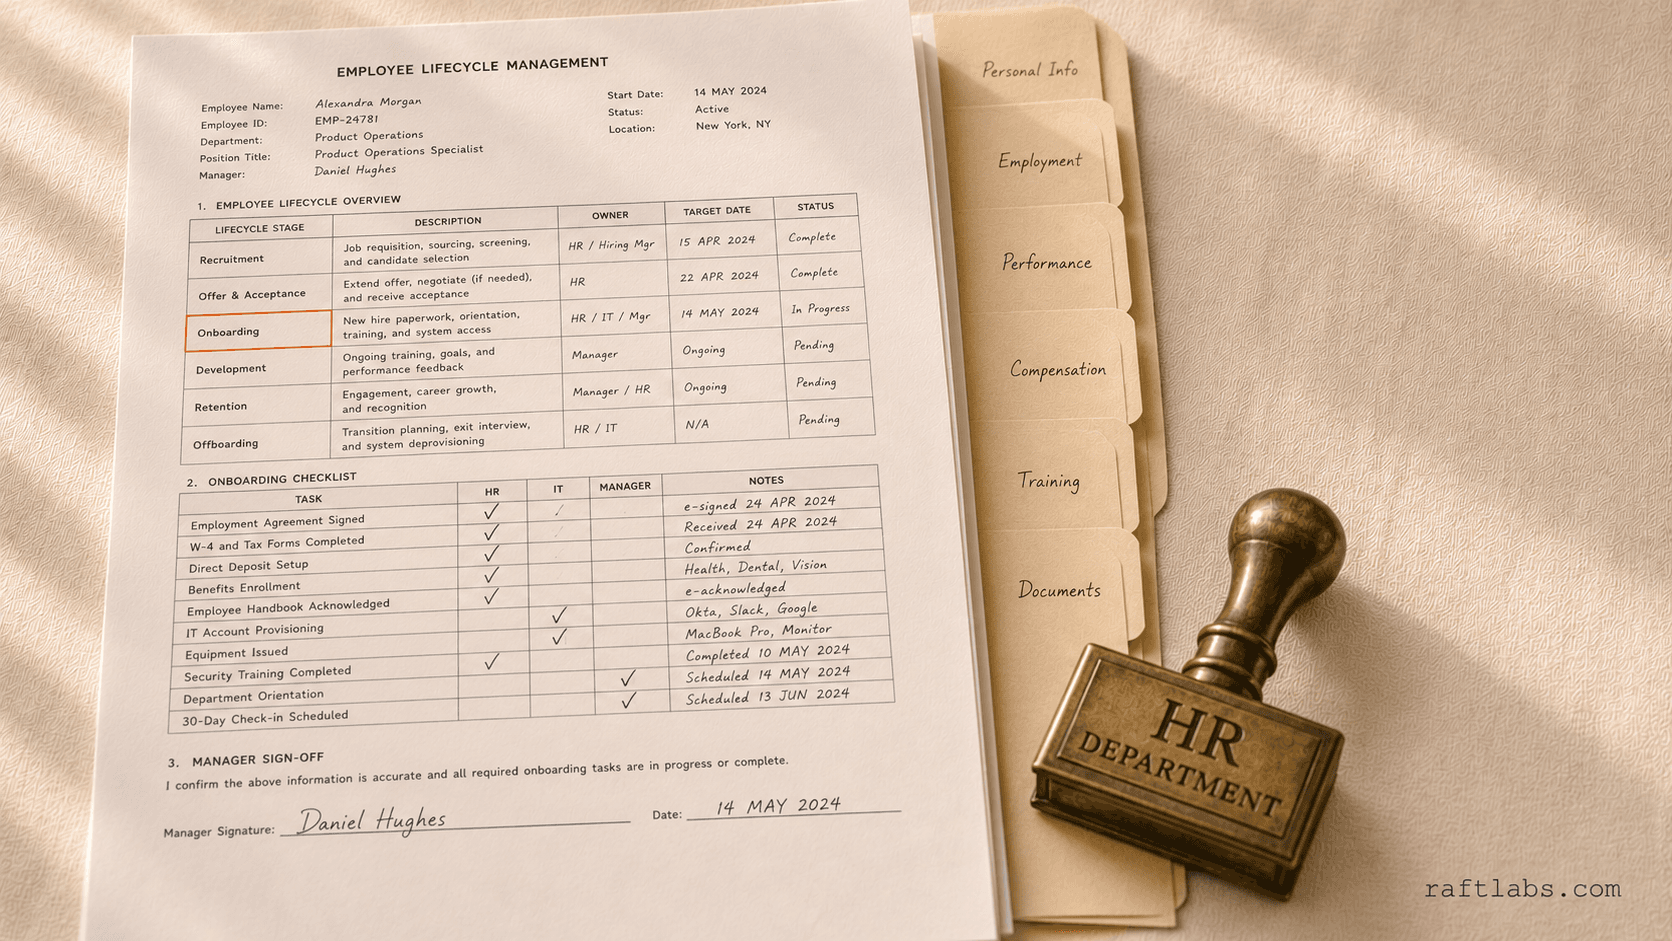 EMPLOYEE LIFECYCLE MANAGEMENT
Employee Name: Alexandra Morgan
Employee ID: EMP-24781
Department: Product Operations
Position Title: Product Operations Specialist
Manager: Daniel Hughes
Start Date: 14 MAY 2024
Status: Active
Location: New York, NY
1. EMPLOYEE LIFECYCLE OVERVIEW
LIFECYCLE STAGE DESCRIPTION OWNER TARGET DATE STATUS
Recruitment Job requisition, sourcing, screening, HR / Hiring Mgr 15 APR 2024 Complete
and candidate selection
Offer & Acceptance Extend offer, negotiate (if needed), HR 22 APR 2024 Complete
and receive acceptance
Onboarding New hire paperwork, orientation, HR / IT / Mgr 14 MAY 2024 In Progress
training, and system access
Development Ongoing training, goals, and Manager Ongoing Pending
performance feedback
Retention Engagement, career growth, Manager / HR Ongoing Pending
and recognition
Offboarding Transition planning, exit interview, HR / IT N/A Pending
and system deprovisioning
2. ONBOARDING CHECKLIST
TASK HR IT MANAGER NOTES
Employment Agreement Signed ✓ e-signed 24 APR 2024
W-4 and Tax Forms Completed ✓ Received 24 APR 2024
Direct Deposit Setup ✓ Confirmed
Benefits Enrollment ✓ Health, Dental, Vision
Employee Handbook Acknowledged ✓ e-acknowledged
IT Account Provisioning ✓ Okta, Slack, Google
Equipment Issued ✓ MacBook Pro, Monitor
Security Training Completed ✓ Completed 10 MAY 2024
Department Orientation ✓ Scheduled 14 MAY 2024
30-Day Check-in Scheduled ✓ Scheduled 13 JUN 2024
3. MANAGER SIGN-OFF
I confirm the above information is accurate and all required onboarding tasks are in progress or complete.
Manager Signature: Daniel Hughes Date: 14 MAY 2024
Personal Info
Employment
Performance
Compensation
Training
Documents
HR
DEPARTMENT
raftlabs.com